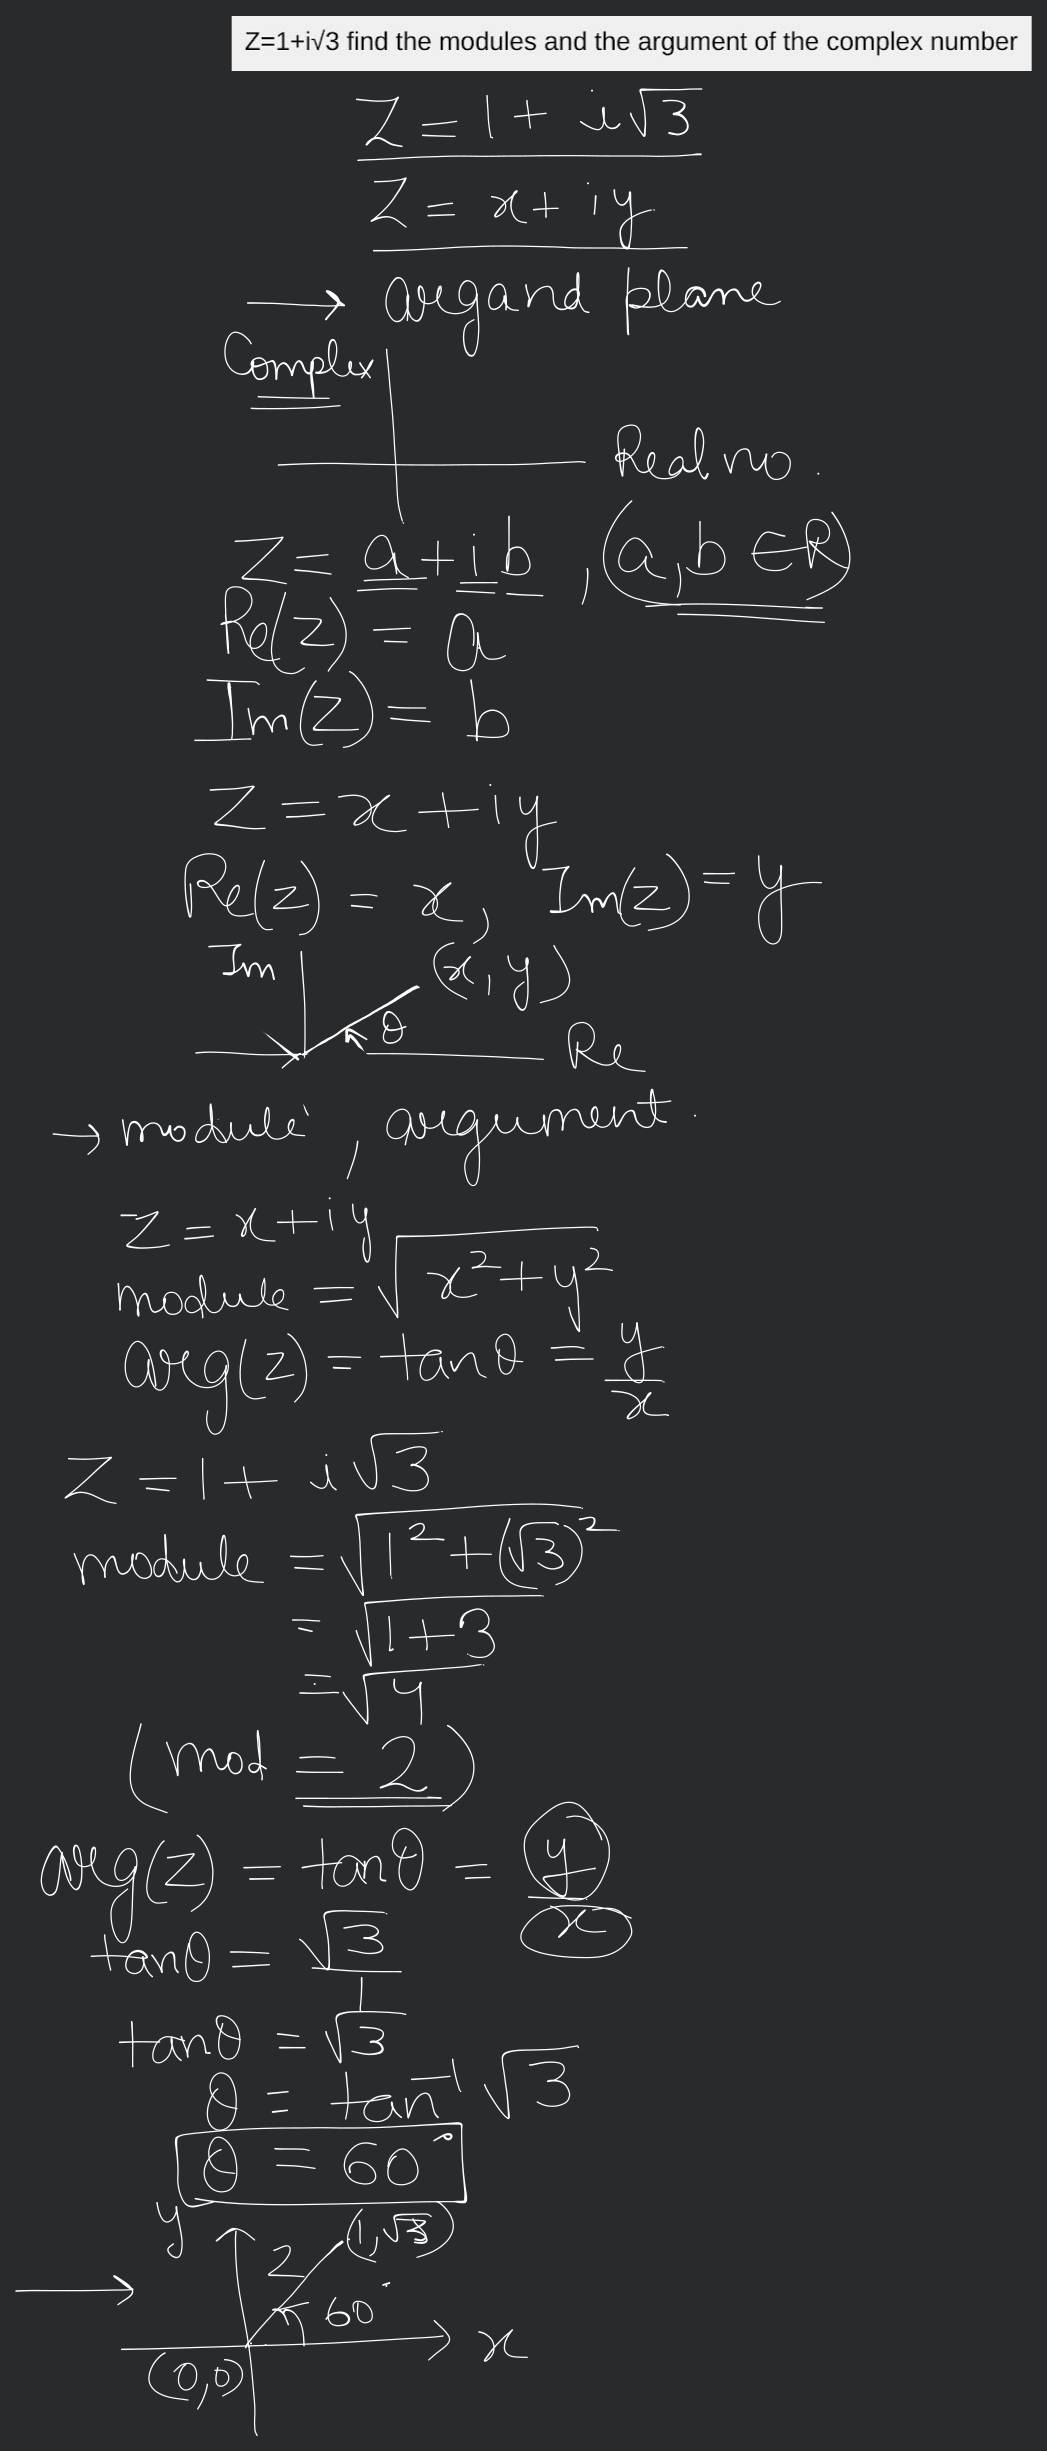 Z=1+i√3 find the modules and the argument of the complex number
Z = 1 + i√3
Z = x + iy
→ argand plane
Complex
Real no.
Z = a + ib , (a, b ∈ R)
Re(z) = a
Im(z) = b
Z = x + iy
Re(z) = x, Im(z) = y
Im (x, y)
θ
Re
→ module , argument.
Z = x + iy
module = √x²+y²
arg(z) = tanθ = y/x
Z = 1 + i√3
module = √1²+(√3)²
= √1+3
= √4
(mod = 2)
arg(z) = tanθ = y/x
tanθ = √3/1
tanθ = √3
θ = tan⁻¹ √3
θ = 60°
y
(1, √3)
2
→ 60°
x
(0,0)